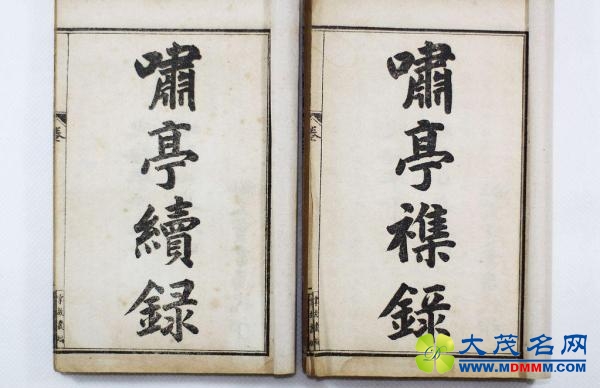 嘯亭續録
嘯亭襍録
卷
卷
大茂名网
www.MDMMM.com